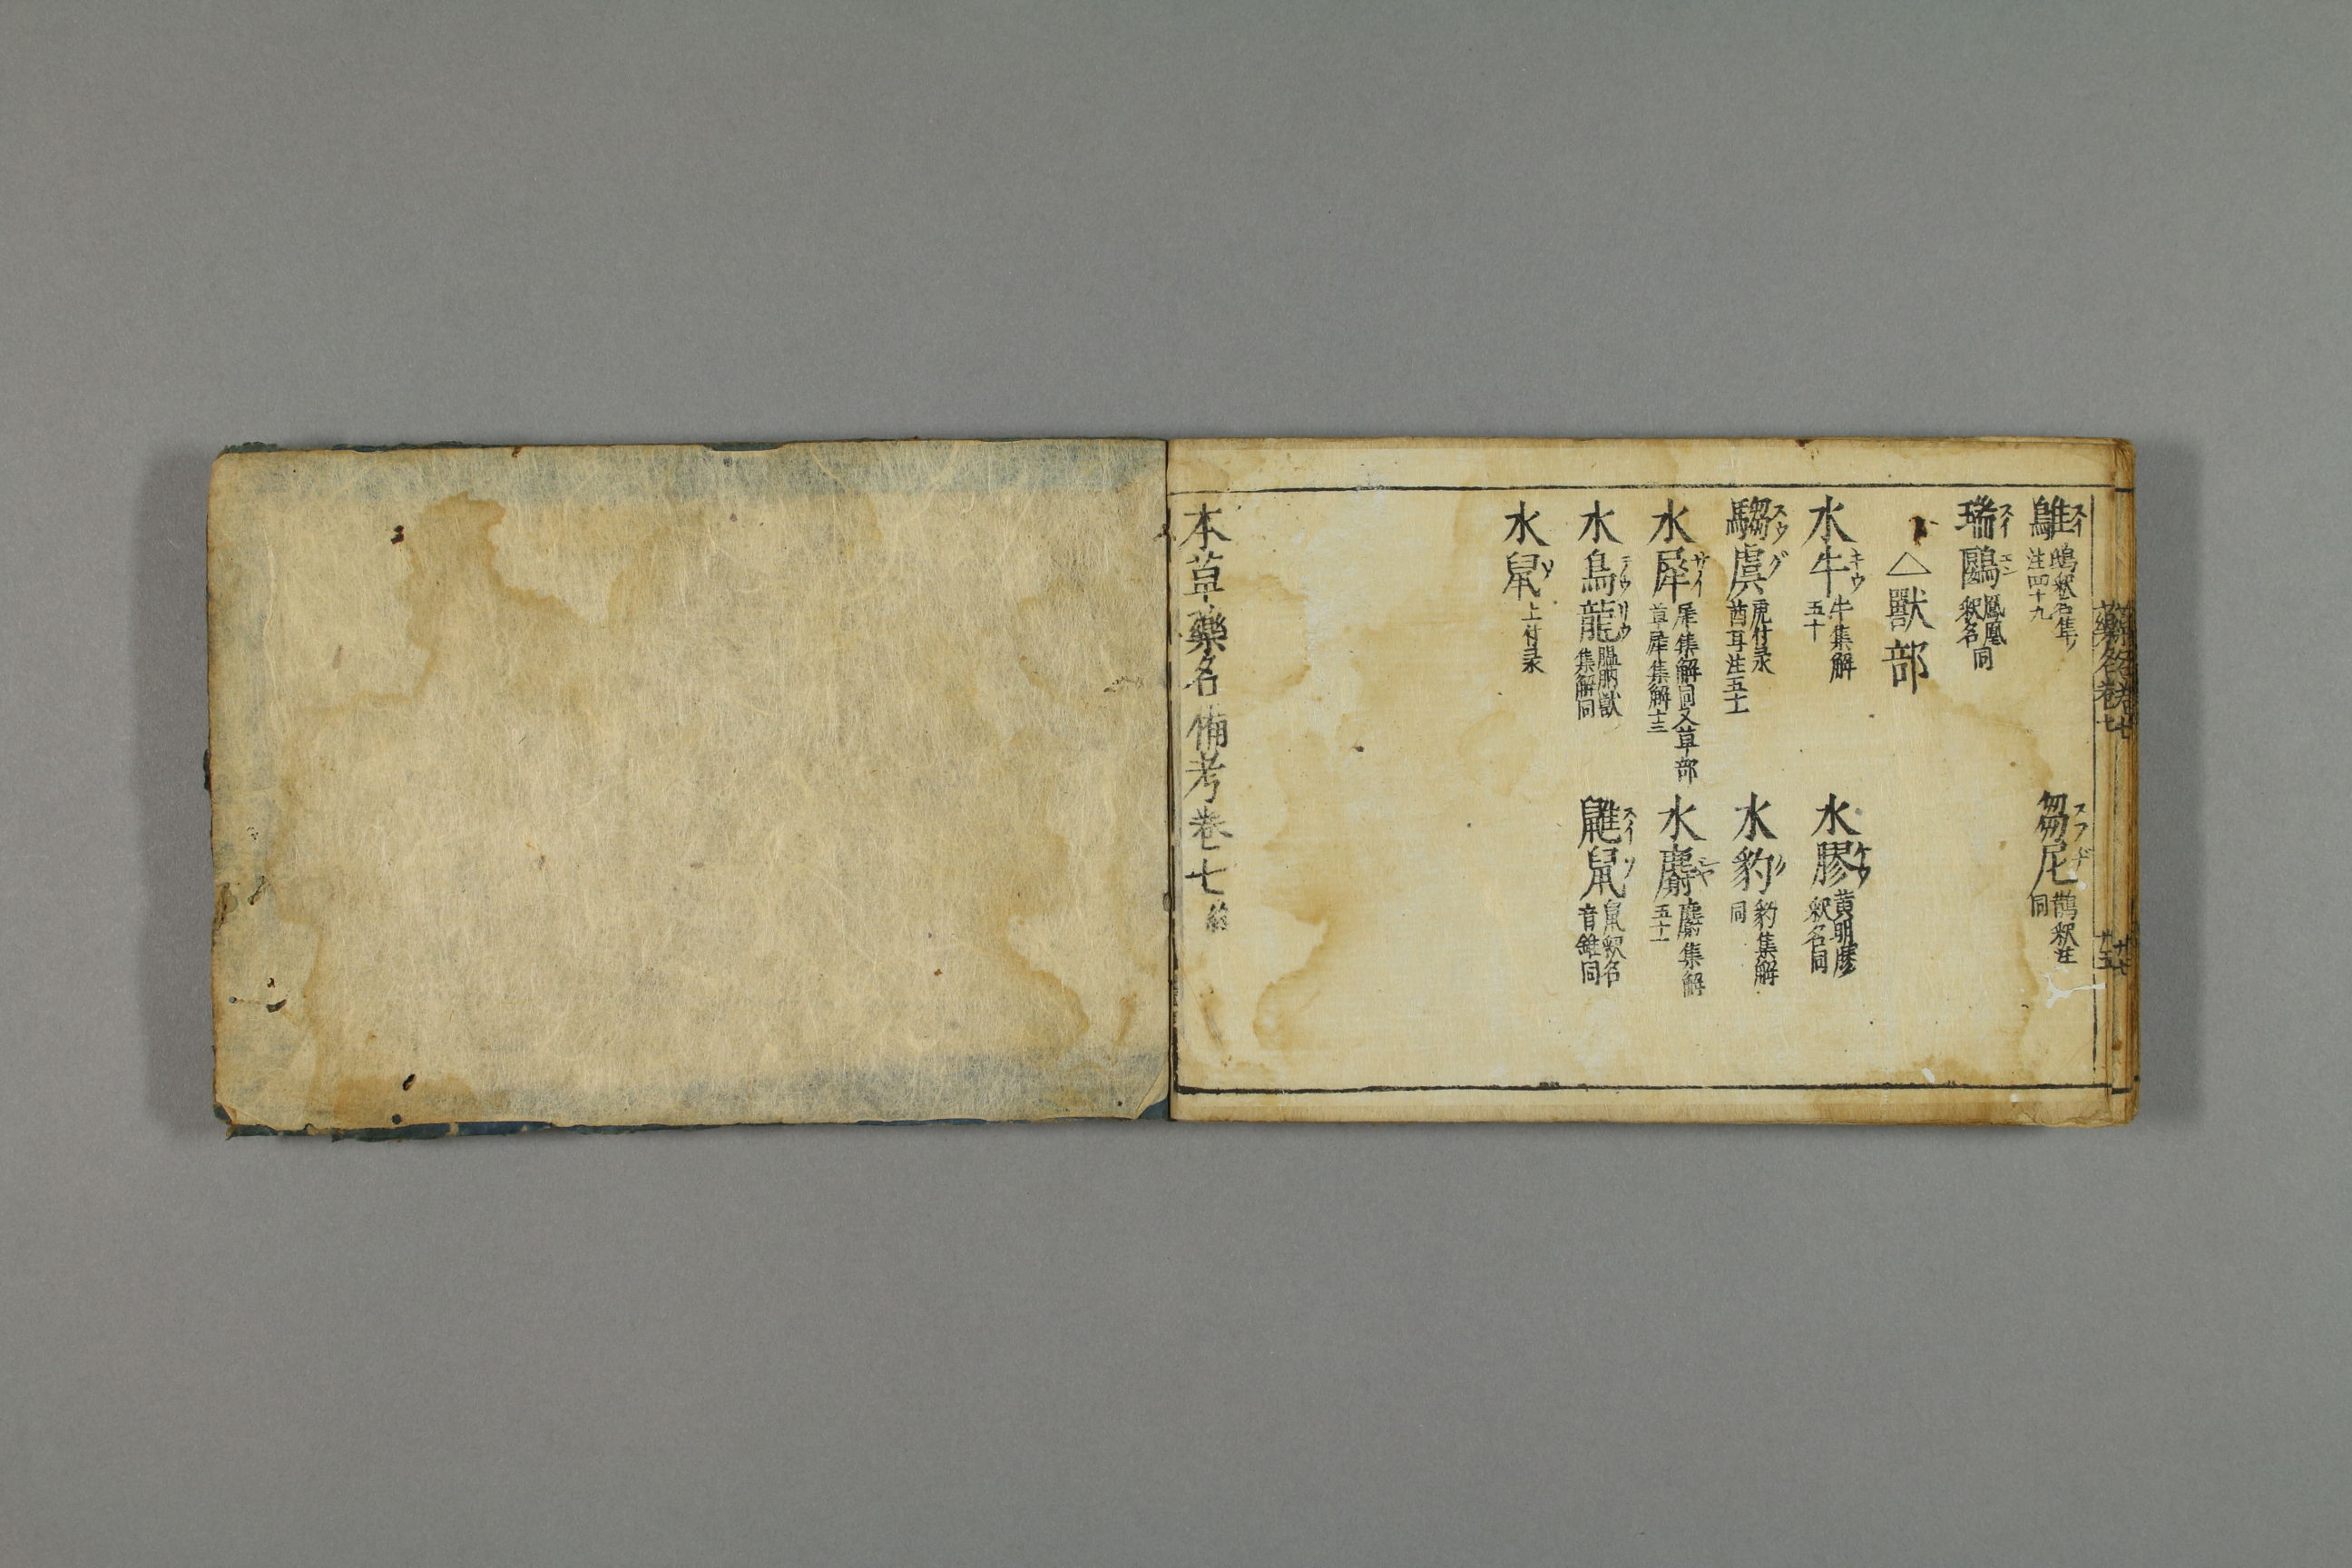 藥名卷七
廿五
鵻スイ 鴡釈名集注四十九
芻尼スフヂ 鵲釈注同
瑞鶠スイエン 鳳凰釈名同
△獸部
水牛キウ 牛集解五十
水膠ケウ 黄明膠釈名同
騶虞スウグ 虎付录酋耳注五十一
水豹 豹集解同
水犀サイ 犀集解同又草部草犀集解十三
水麝シヤ 麝集解五十一
水烏龍 膃肭獣集解同
鼪鼠スイソ 鼠釈名音錐同
水鼠ソ 上付录
本草藥名備考卷七終